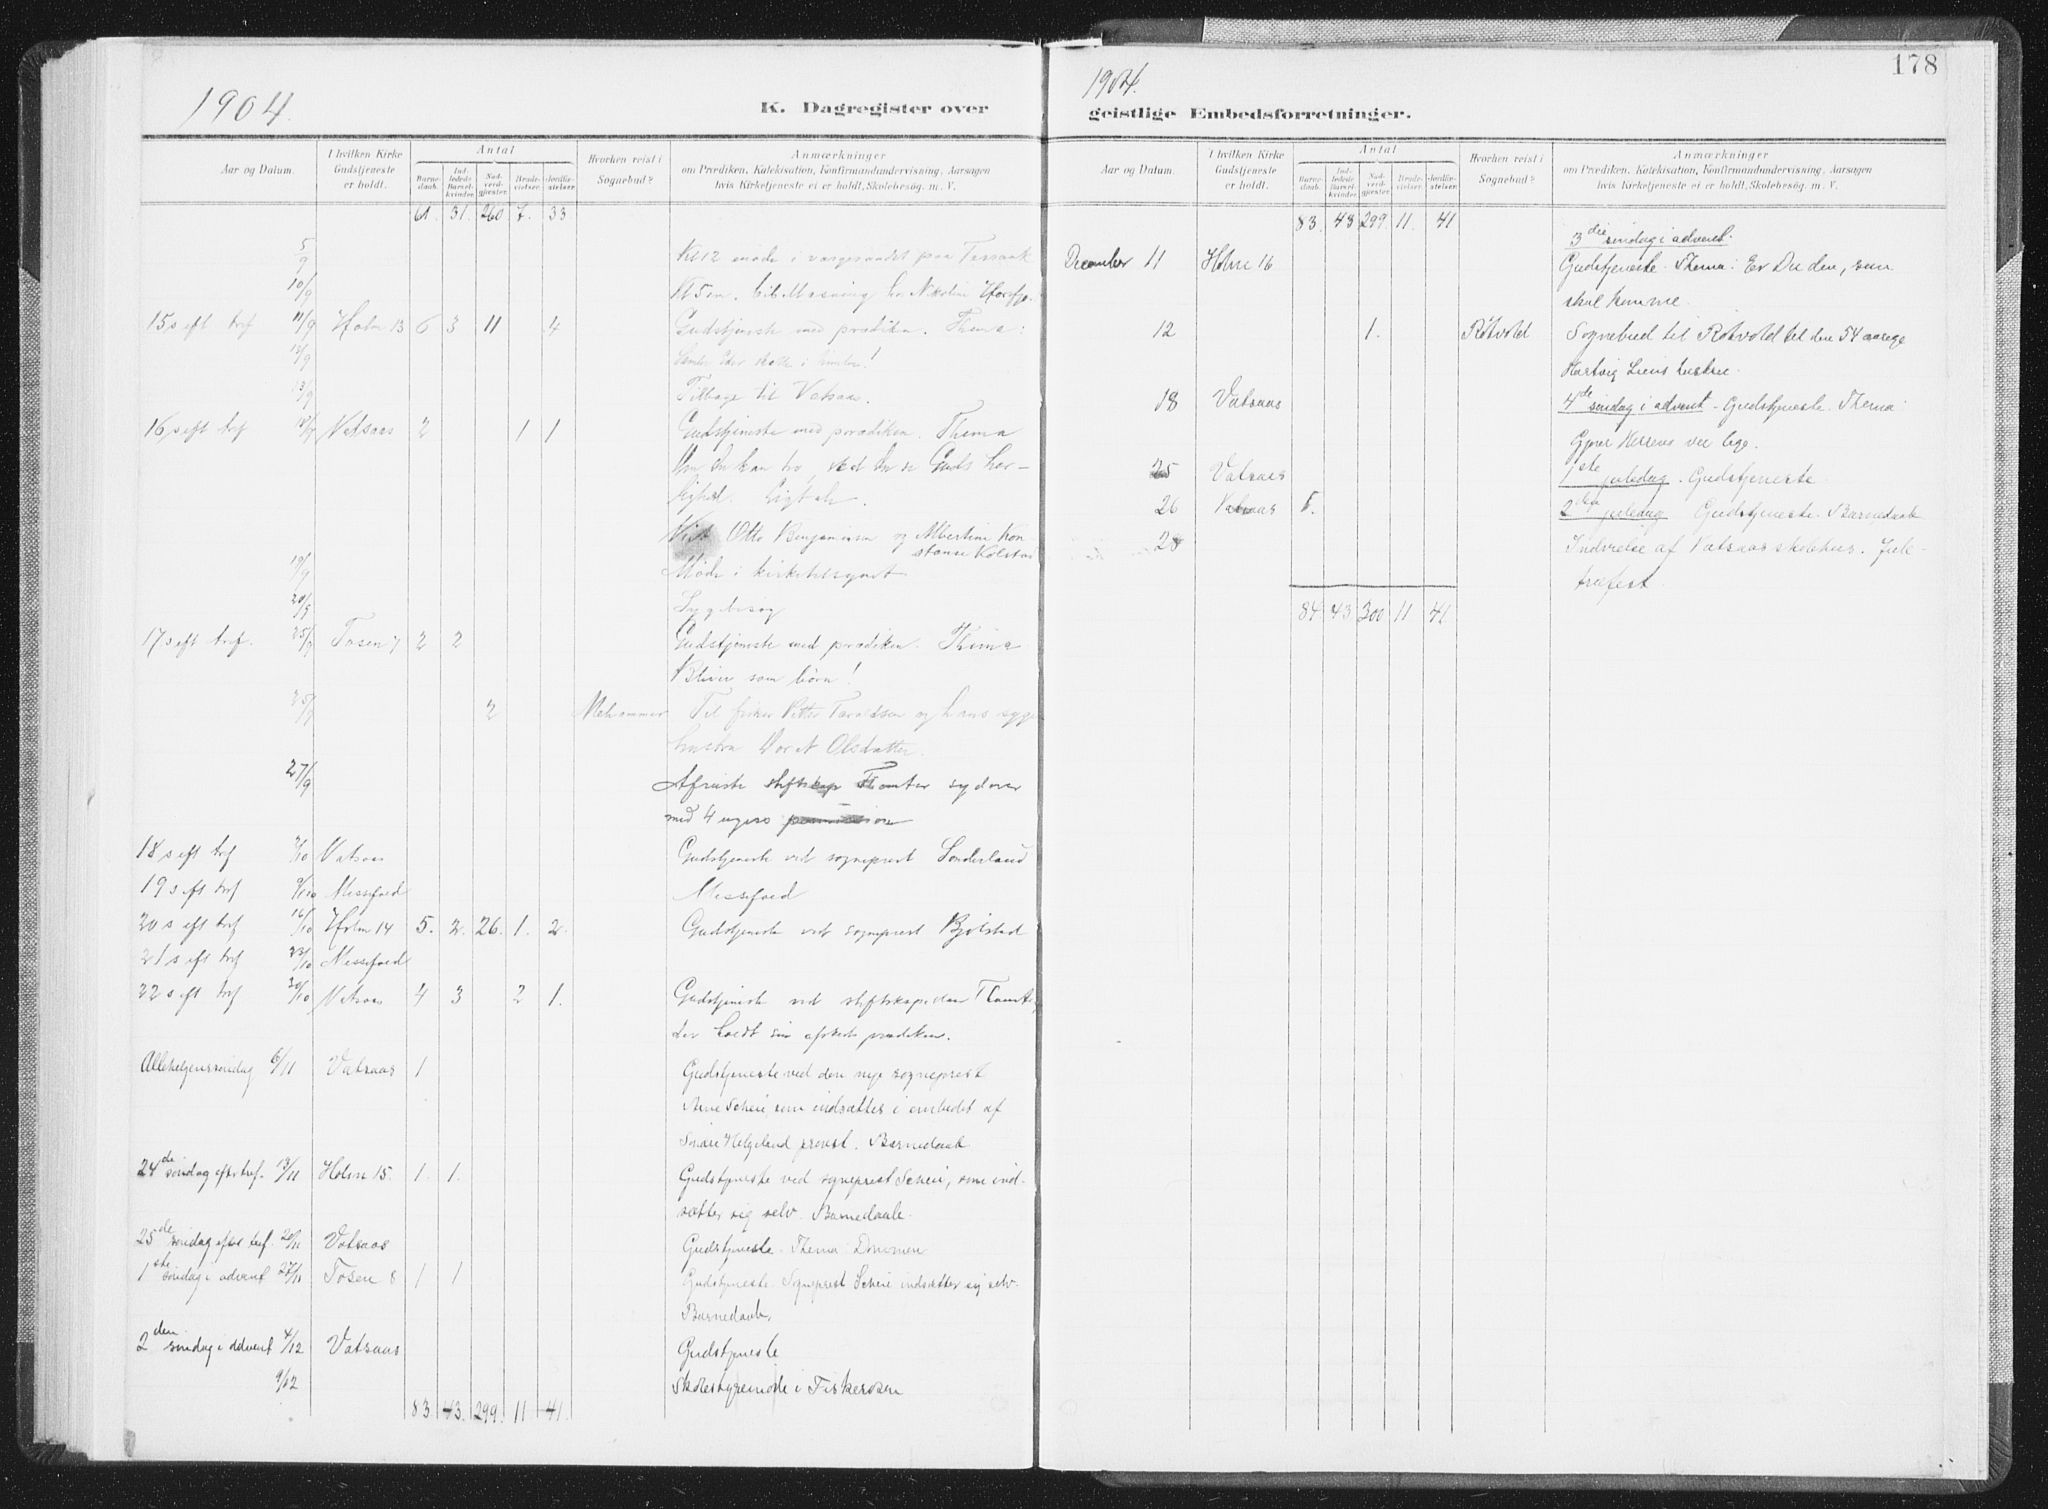 1904.
K. Dagregister over
Aar og Datum.
I hvilken Kirke Gudstjeneste er holdt.
Antal
Barnedaab. Indledede Barselkvinder. Nadverdgjester. Brudevielser. Jordfæstelser.
Hvorhen reist i Sognebud?
Anmærkninger
om Prædiken, Katekisation, Konfirmandundervisning, Aarsagen
hvis Kirketjeneste ei er holdt, Skolebesøg. m. V.
61. 31. 260 7. 33
5/9 Kl 12 møde i vergeraadet paa
10/9 Kl 5 em.
15 s eft tref 11/9 Holm 13 6 3 11 4 Gudstjeneste med prædiken. Thema:
12/9
13/9 Tilbage til Vatsaas.
16 s eft tref 18/9 Vatsaas 2 1 1 Gudstjeneste med prædiken. Thema
Om du kan tro, skal du se Guds her-
lighed.
Viet Otto Benjaminsen og Albertine Kon
stanse Kolstad
19/9 Møde i kirketilsynet
20/9 Sygebesøg
17 s eft tref. 25/9 Tosen 7 2 2 Gudstjeneste med prædiken. Thema
Bliver som børn!
25/9 2 Mehammer Til fisker Petter Taraldsen og hans syge
hustru Olsdatter.
27/9 Afreiste stiftskap sydover
med 4 ugers
18 s eft tref 2/10 Vatsaas Gudstjeneste ved sogneprest Sonderland
19 s eft tref 9/10 Messefald Messefald
20 s eft tref 16/10 Holm 14 5. 2. 26. 1. 2. Gudstjeneste ved sogneprest Bjølstad
21 s eft tref 23/10 Messefald
22 s eft tref 30/10 Vatsaas 4 3 2 1. Gudstjeneste ved stiftskapellan
der holdt sin afskeds prædiken.
Allehelgenssøndag 6/11 Vatsaas 1 Gudstjeneste ved den nye sogneprest
Arne Scheie som indsættes i embedet af
Søndre Helgeland provst. Barnedaab
24de søndag efter tref. 13/11 Holm 15. 1. 1. Gudstjeneste ved sogneprest Scheie, som ind-
sætter sig selv. Barnedaab.
25de søndag efter tref. 20/11 Vatsaas Gudstjeneste. Thema: Dommen
1ste søndag i advent 27/11 Tosen 8 1 1 Gudstjeneste. Sogneprest Scheie indsætter sig selv.
Barnedaab.
2den søndag i advent 4/12 Vatsaas Gudstjeneste
9/12 Skolestyremøde i Fiskerosen
83 43. 299. 11 41.
178
1904.
geistlige Embedsforretninger.
Aar og Datum.
I hvilken Kirke Gudstjeneste er holdt.
Antal
Barnedaab. Indledede Barselkvinder. Nadverdgjester. Brudevielser. Jordfæstelser.
Hvorhen reist i Sognebud?
Anmærkninger
om Prædiken, Katekisation, Konfirmandundervisning, Aarsagen
hvis Kirketjeneste ei er holdt, Skolebesøg. m. V.
83. 43 299. 11. 41
3die søndag i advent.
December 11 Holm 16 Gudstjeneste. Thema: Er Du den, som
skal komme.
12 1. Røtvold Sognebud til Røtvold til den 54 aarige
Hartvig Liens hustru.
18 Vatsaas 4de søndag i advent. Gudstjeneste. Thema:
Gjører Herrens vei lige.
25 Vatsaas 1ste juledag. Gudstjeneste.
26 Vatsaas 1. 2den juledag Gudstjeneste. Barnedaab
28 Indvielse af Vatsaas skolehus. Jule-
træfest.
84 43 300 11 41